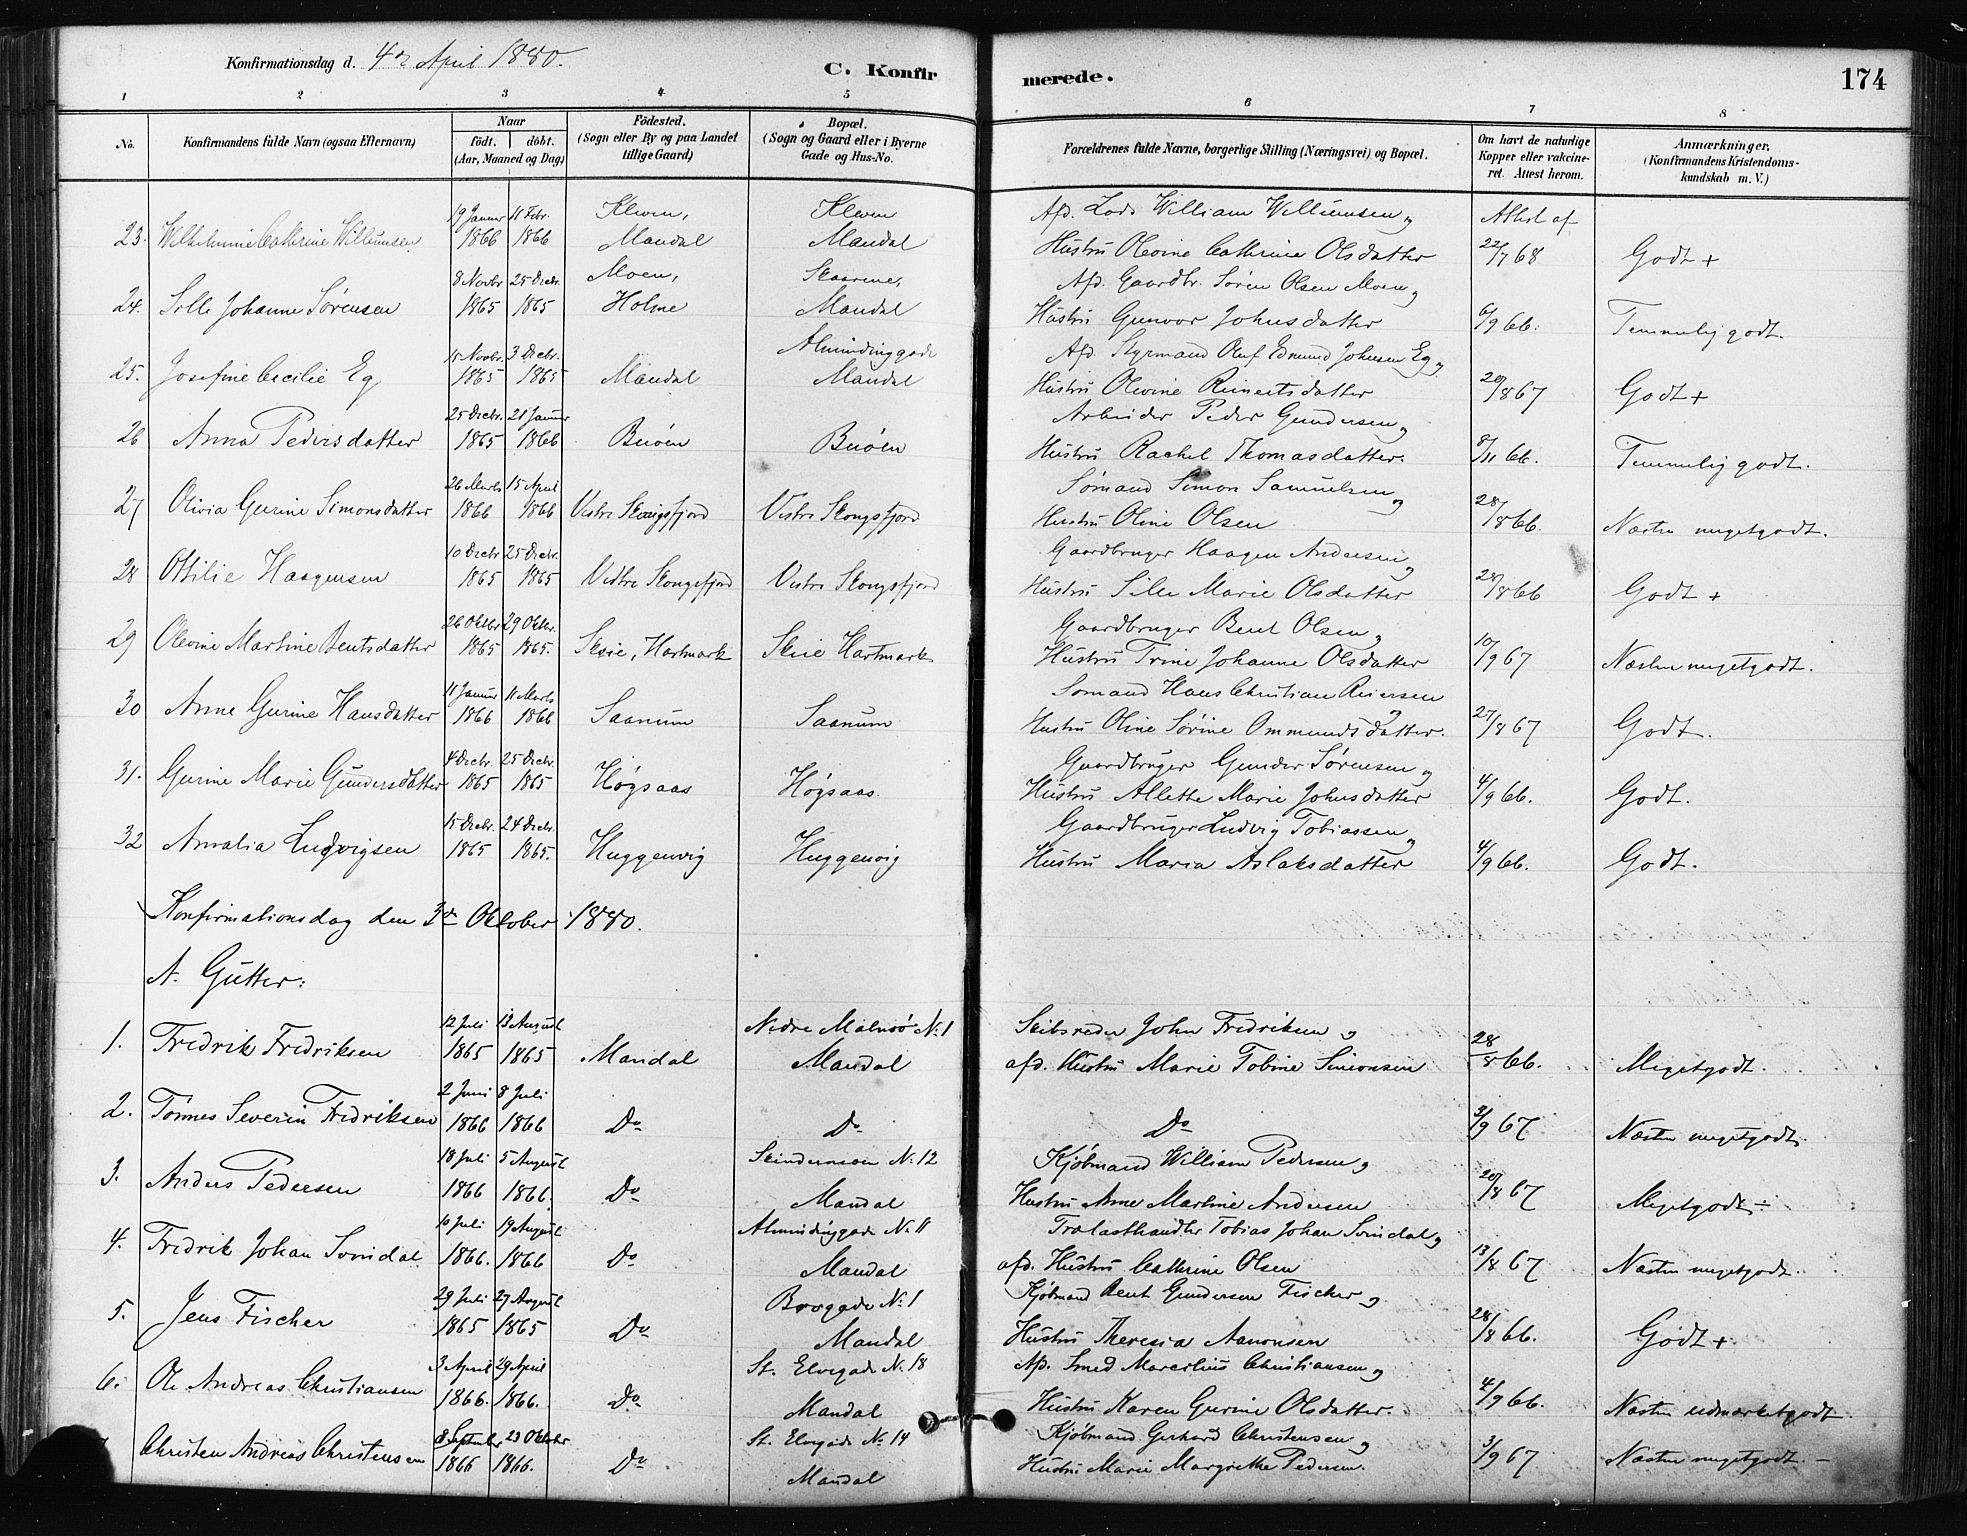 Konfirmationsdag d. 4de April 1880.
C. Konfirmerede.
174
1 2 3 4 5 6 7 8
No.
Konfirmandens fulde Navn (ogsaa Efternavn)
Naar
födt. döbt.
(Aar, Maaned og Dag)
Födested.
(Sogn eller By og paa Landet
tillige Gaard)
Bopæl.
(Sogn og Gaard eller i Byerne
Gade og Hus-No.
Forældrenes fulde Navne, borgerlige Stilling (Næringsvei) og Bopæl.
Om havt de naturlige
Kopper eller vakcineret.
Attest herom.
Anmærkninger,
(Konfirmandens Kristendomskundskab
m. V.)
19 Januar 11 Febr. Kleven, Kleven Afd. Lods William Willumsen og Attest af
23. Wilhelmine Cathrine Willumsen 1866 1866 Mandal Mandal Hustru Olevine Cathrine Olsdatter 22/7 68 Godt +
8 Novbr 25 Decbr. Moen, Skaarene, Afd. Gaardbr. Sören Olsen Moen og
24. Sille Johanne Sørensen 1865 1865 Holme Mandal Hustru Gunvor Johnsdatter 6/9 66. Temmelig godt.
15 Novbr. 3 Decbr. Almindinggade Afd. Styrmand Oluf Edmund Johnsen Eg og
25. Josefine Cecilie Eg 1865 1865 Mandal Mandal Hustru Olevine Reinertsdatter 20/8 67 Godt +
25 Decbr. 21 Januar Arbeider Peder Gundersen og
26 Anna Pedersdatter 1865 1866 Buöen Buöen Hustru Rachel Thomasdatter. 8/11 66. Temmelig godt.
26 Marts 15 April Sømand Simon Samuelsen og
27 Olivia Gurine Simonsdatter 1866 1866 Vestre Skogsfjord Vestre Skogsfjord Hustru Oline Olsen 28/8 66. Næsten megetgodt.
10 Decbr 25 Decbr. Gaardbruger Haagen Andersen og
28 Ottilie Haagensen 1865 1865 Vestre Skogsfjord Vestre Skogsfjord Hustru Sille Marie Olsdatter 28/8 66 Godt +
26 Oktbr 29 Oktbr. Gaardbruger Bent Olsen og
29 Olevine Martine Bentsdatter 1865 1865. Skeie, Hartmark Skeie Hartmark Hustru Trine Johanne Olsdatter 10/9 67 Næsten megetgodt.
11 Januar 11 Marts Sømand Hans Christian Reiersen og
30 Anne Gurine Hansdatter 1866 1866 Saanum Saanum Hustru Oline Sørine Ommundsdatter. 27/8 67 Godt.
4 Decbr. 25 Decbr. Gaardbruger Gunder Sørensen og
31. Gurine Marie Gundersdatter 1865 1865 Høgsaas Høgsaas. Hustru Allette Marie Johnsdatter 4/9 66. Godt.
15 Decbr. 24 Decbr. Gaardbruger Ludvig Tobiassen og
32 Amalia Ludvigsen 1865 1865. Huggenvig Huggenvig Hustru Maria Aslaksdatter 4/9 66. Godt.
Konfirmationsdag den 3de Oktober 1880.
A. Gutter:
12 Juli 13 August Nedre Malmö N. 1 Skibsreder John Fredriksen og
1. Fredrik Fredriksen 1865 1865 Mandal Mandal afd. Hustru Marie Tobine Simonsen 28/8 66. Megetgodt.
2 Juni 8 Juli
2. Tönnes Severin Fredriksen 1866 1866 Do Do Do 3/9 67 Næsten megetgodt.
18 Juli 5 August N. 12 Kjöbmand William Pedersen og
3. Anders Pedersen 1866 1866. Do Mandal Hustru Anne Martine Andersen 20/8 67 Megetgodt ÷
10 Juli 19 August Almindinggade N. 11 Trælasthandler Tobias Johan Svindal og
4. Fredrik Johan Svindal 1866. 1866 Do Mandal afd. Hustru Cathrine Olsen 13/8 67 Næsten megetgodt.
29 Juli 27 August N. 1 Kjöbmand Bent Gundersen Fischer og
5. Jens Fischer 1865 1865 Do Mandal Hustru Theresia Aanonsen 28/8 66. Godt +
3 April 29 April St. Elvegade N. 18 Afd. Smed Marcelius Christiansen og
6. Ole Andreas Christiansen 1866. 1866. Do Mandal Hustru Karen Gurine Olsdatter 4/9 66. Næsten udmærketgodt.
8 September 29 Oktober St. Elvegade N. 14 Kjöbmand Gerhard Christensen og
Christen Andreas Christensen 1866 1866. Do Mandal Hustru Marie Margrethe Pedersen. 3/9 67 Næsten megetgodt. –